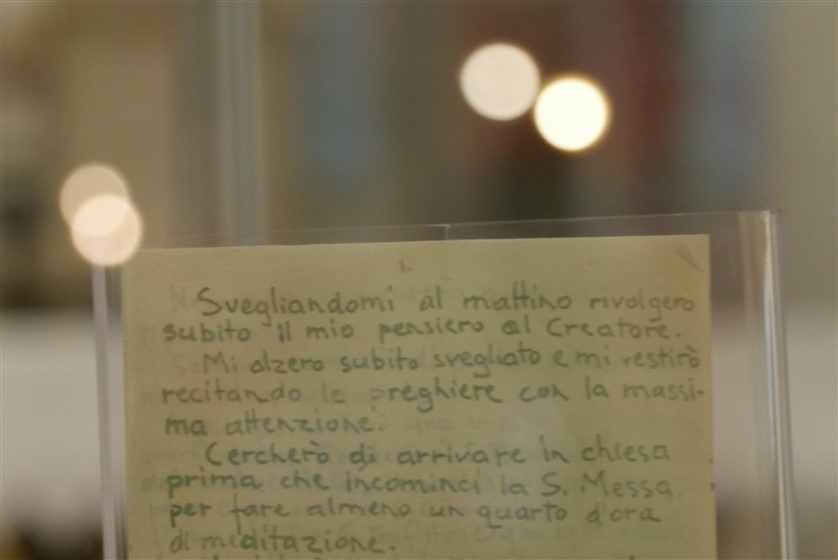 1.
Svegliandomi al mattino rivolgerò
subito il mio pensiero al Creatore.
Mi alzerò subito svegliato e mi vestirò
recitando le preghiere con la massi-
ma attenzione.
Cercherò di arrivare in chiesa
prima che incominci la S. Messa
per fare almeno un quarto d'ora
di meditazione.